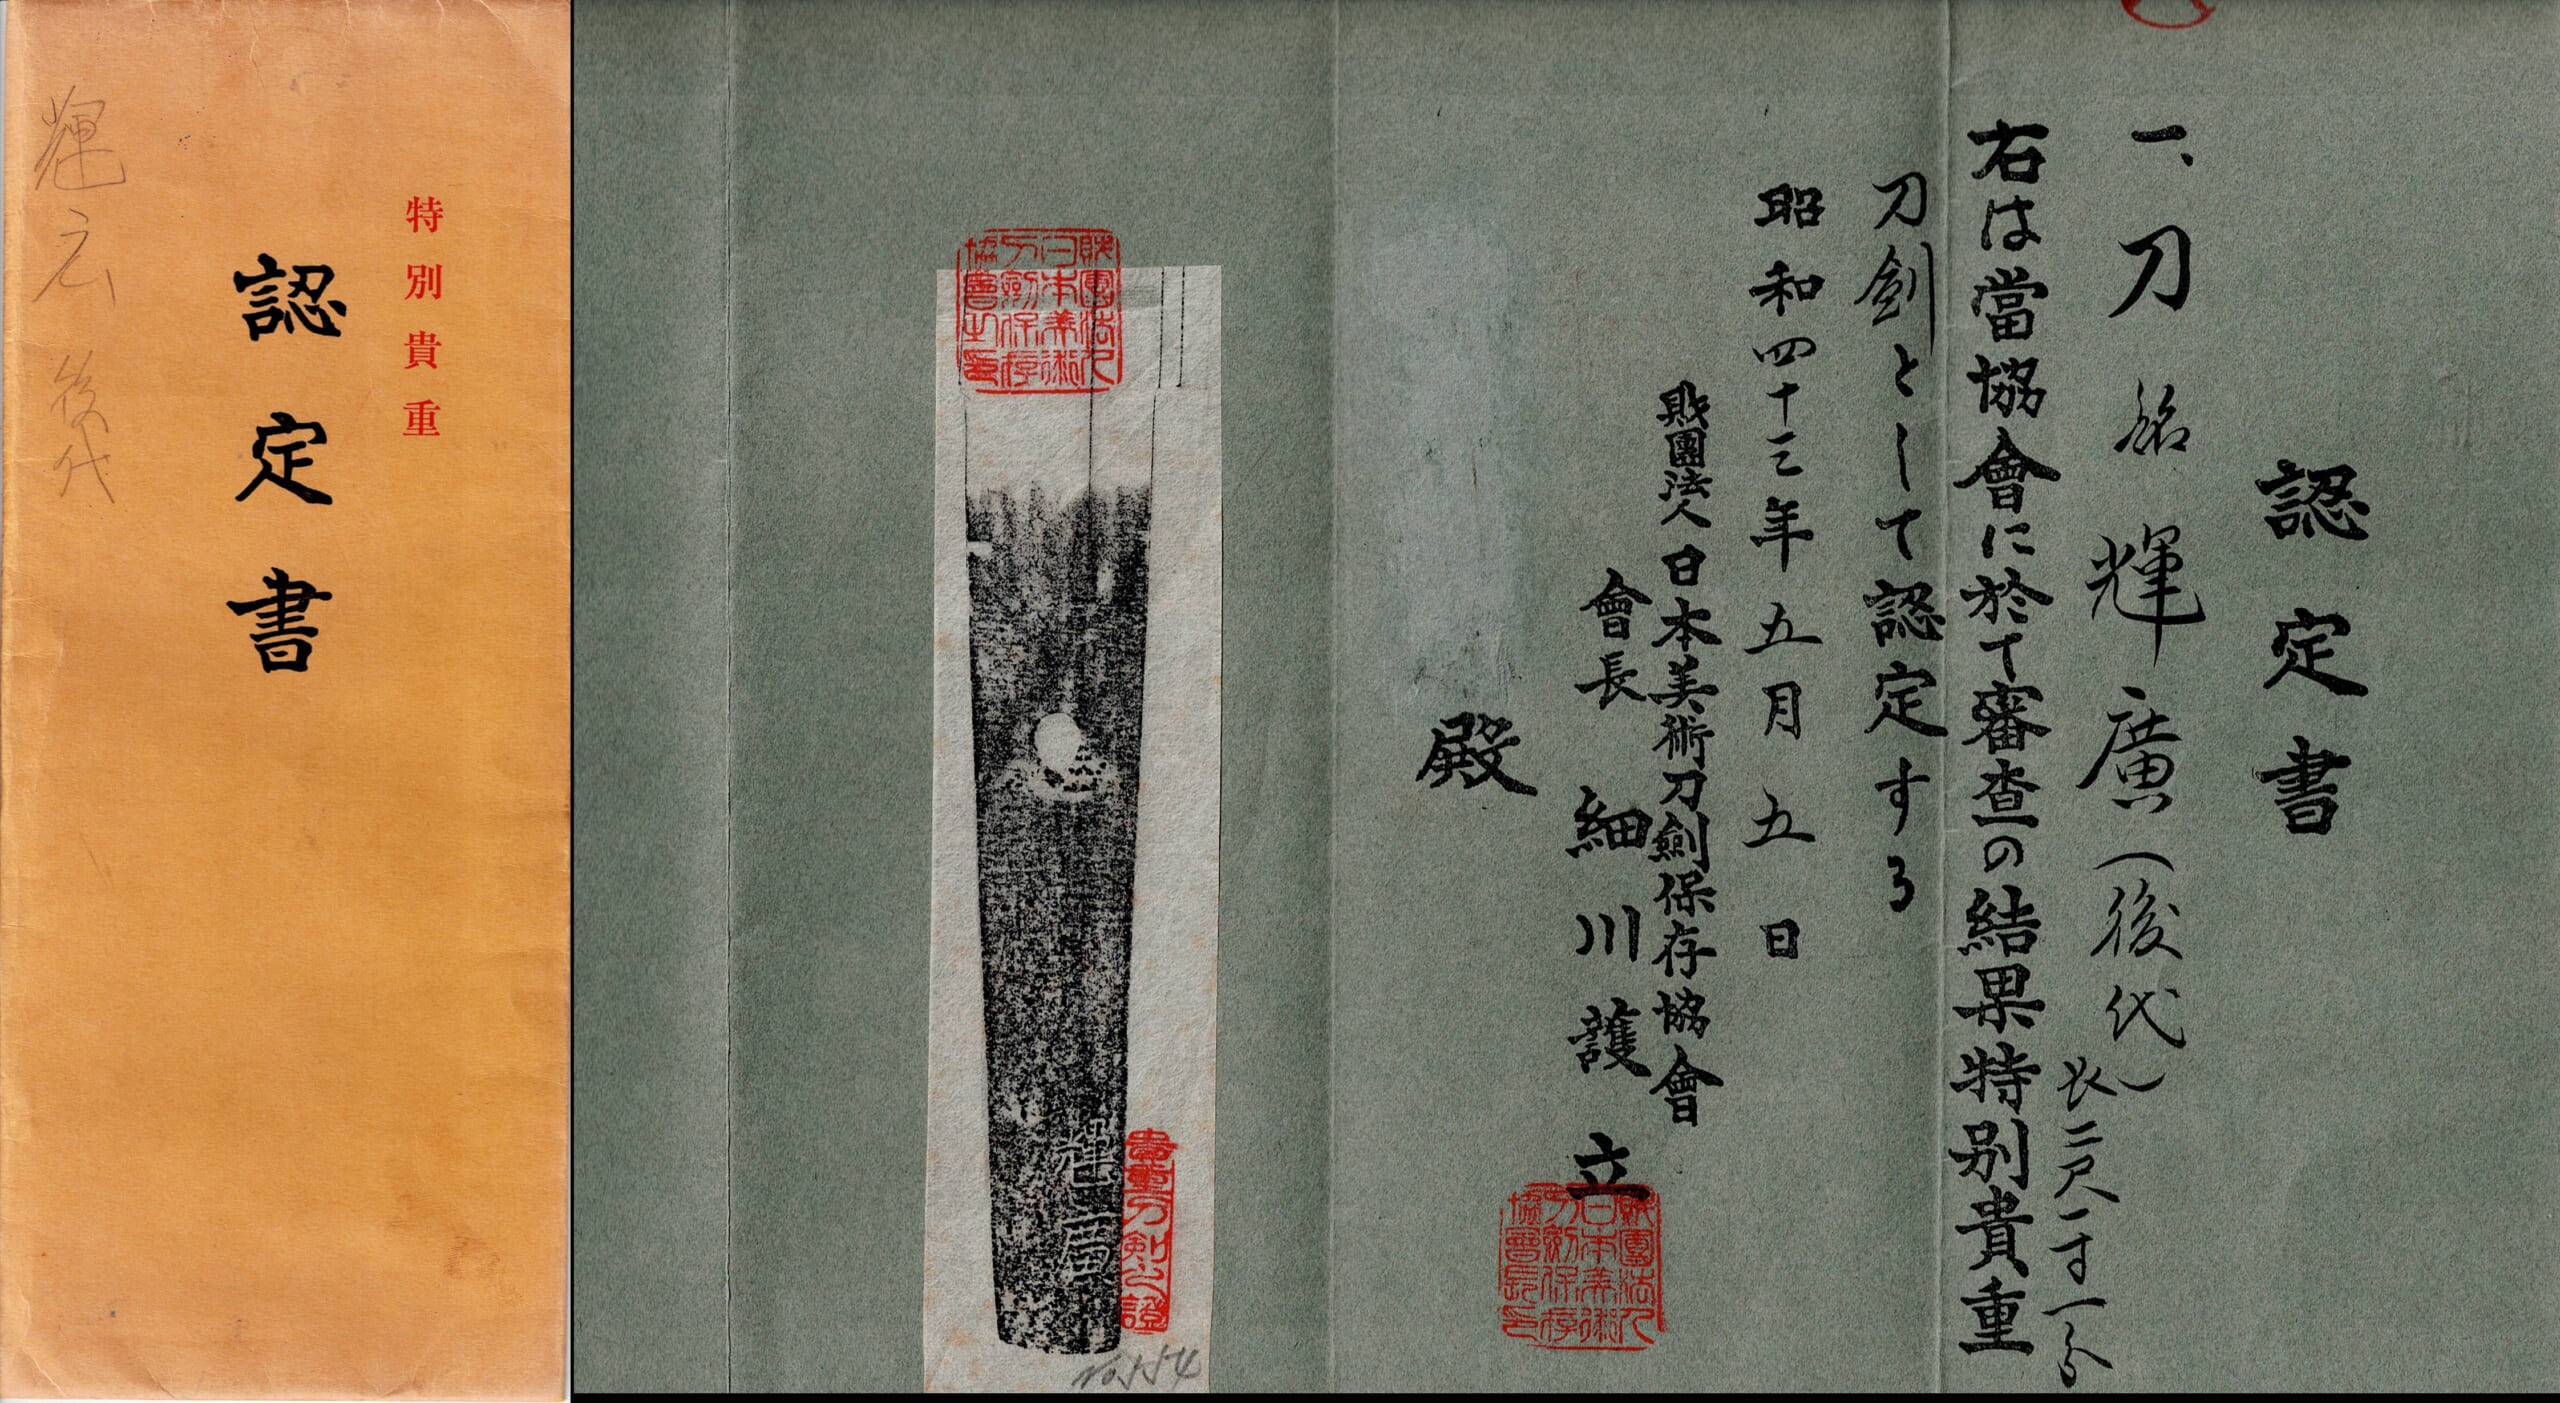 特別貴重
認定書
輝広 後代
認定書
一、刀 銘 輝廣(後代)
長二尺一寸一分
右は當協會に於て審査の結果特別貴重
刀剣として認定する
昭和四十三年五月五日
財團法人日本美術刀劍保存協會
會長 細川護立
殿
財團法人日本美術刀劍保存協會長印
財團法人日本美術刀劍保存協會之印
輝廣
貴重刀剣之證
No 554